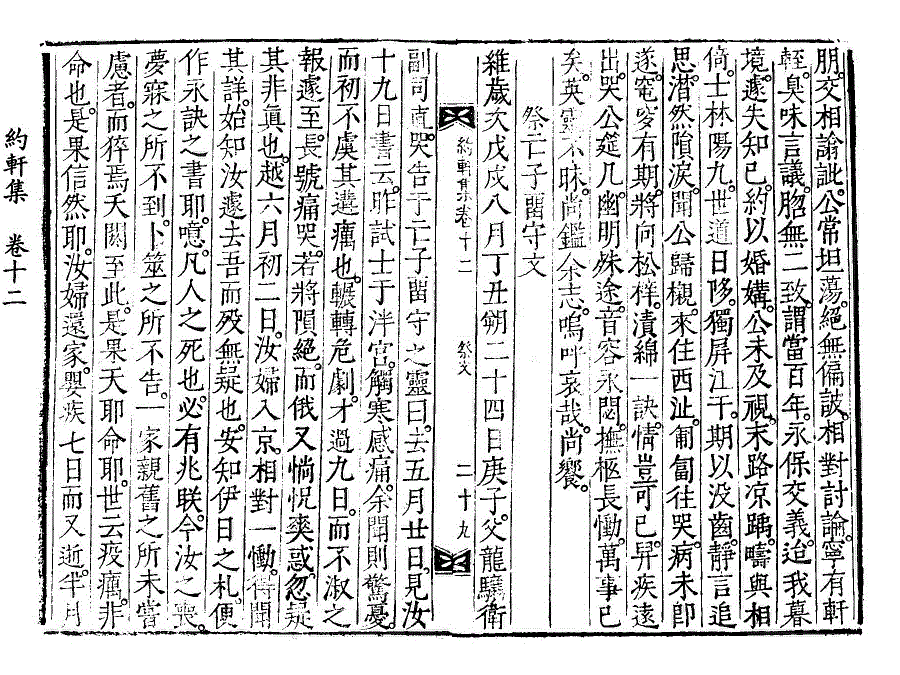 朋。交相諭訿。公常坦蕩。絕無偏詖。相對討論。寧有軒
輊。臭味言議。脗無二致。謂當百年。永保交義。迨我暮
境。遽失知己。約以婚媾。公未及視。末路凉踽。疇與相
倚。士林陽九。世道日陊。獨屏江干。期以没齒。靜言追
思。潸然隕淚。聞公歸櫬。來住西沚。匍匐往哭。病未卽
遂。窀穸有期。將向松梓。漬綿一訣。情豈可已。舁疾遠
出。哭公筵几。幽明殊途。音容永閟。撫柩長慟。萬事已
矣。英靈不昧。尚鑑余志。嗚呼哀哉。尚饗。
祭亡子留守文
維歲次戊戌八月丁丑朔二十四日庚子。父龍驤衛
約軒集卷十二 祭文 二十九
副司直。哭告于亡子留守之靈曰。去五月廿日。見汝
十九日書云。昨試士于泮宮。觸寒感痛。余聞則驚憂。
而初不虞其遘癘也。輾轉危劇。才過九日。而不淑之
報遽至。長號痛哭。若將隕絕。而俄又惝怳爽惑。忽疑
其非眞也。越六月初二日。汝婦入京。相對一慟。得聞
其詳。始知汝遽去吾而歿無疑也。安知伊日之札。便
作永訣之書耶。噫。凡人之死也。必有兆眹。今汝之喪。
夢寐之所不到。卜筮之所不告。一家親舊之所未嘗
慮者。而猝焉夭閼至此。是果天耶命耶。世云疫癘。非
命也。是果信然耶。汝婦還家。嬰疾七日而又逝。半月
約軒集 卷十二